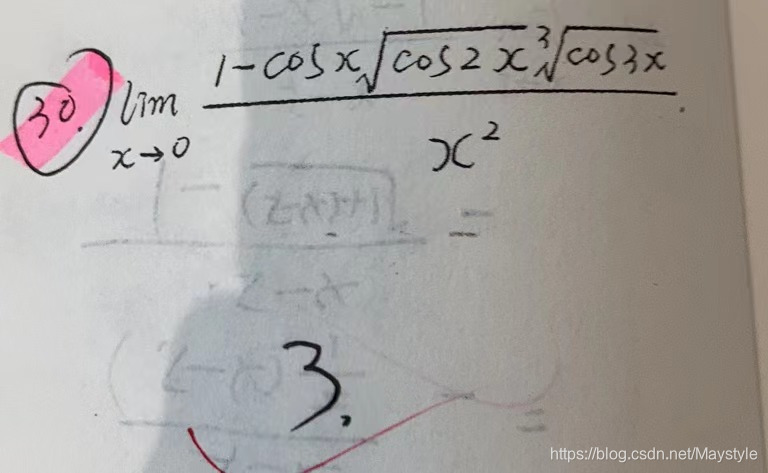 30. lim x→0 (1-cosx√(cos2x) ³√(cos3x)) / x²
3.
https://blog.csdn.net/Maystyle